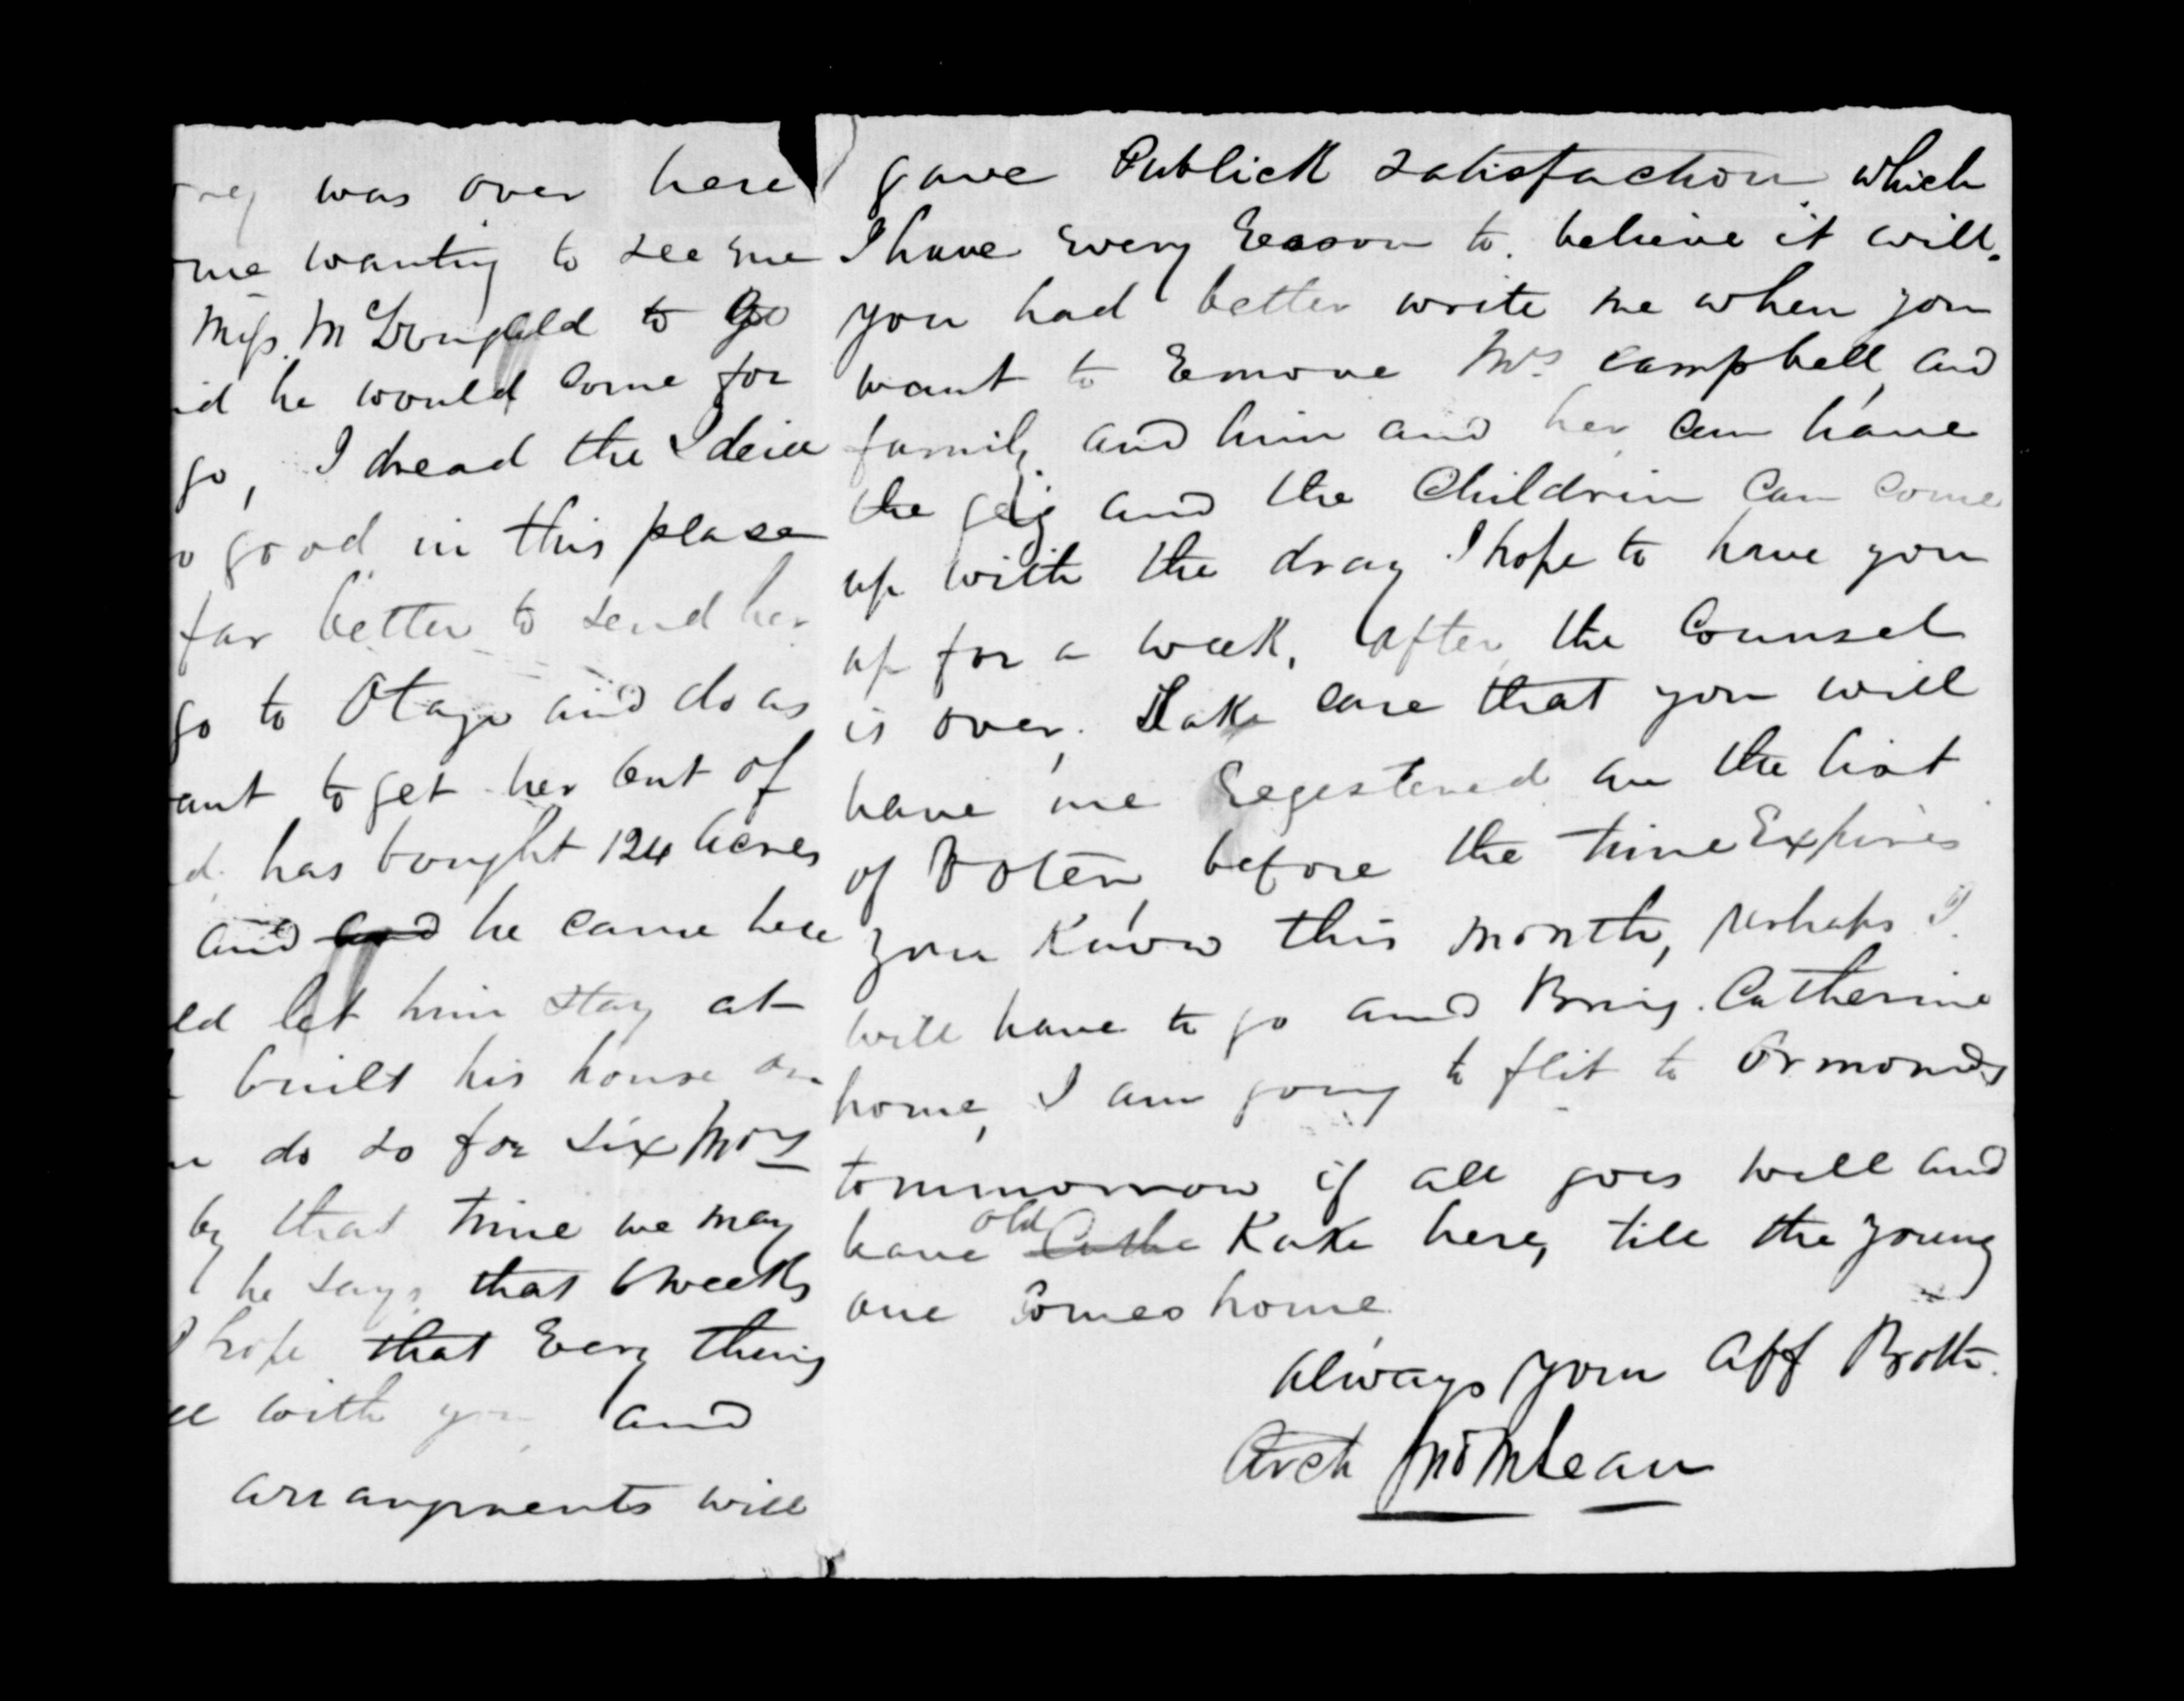 was over here
me wanting to see me
Miss McDongald to go
id he would come for
go, I dread the Ideia
good in this plase
far better to send her
go to Otago and do as
ant to get her out of
d has bought 124 acres
and and he came here
ld let him stay at
built his house on
do so for six Mos
by that time we may
he says that 6 weeks
I hope that Every thing
ll with you and
arrangments will
gave Publick satisfaction which
I have Every Reason to believe it will.
you had better write me when you
want to Remove Mrs Campbell and
family and him and her can have
the geig and the Childrin can come
up with the dray I hope to have you
up for a week, after the Counsel
is over. Take care that you will
have me Regestered on the list
of Voters before the time Expires
you Know this month, perhaps I
will have to go and Bring Catherine
home, I am going to flit to Ormonds
tommorrow if all goes well and
have old Kate here, till the young
one Comes home
Always your Aff Broth.
Arch Jno McLean